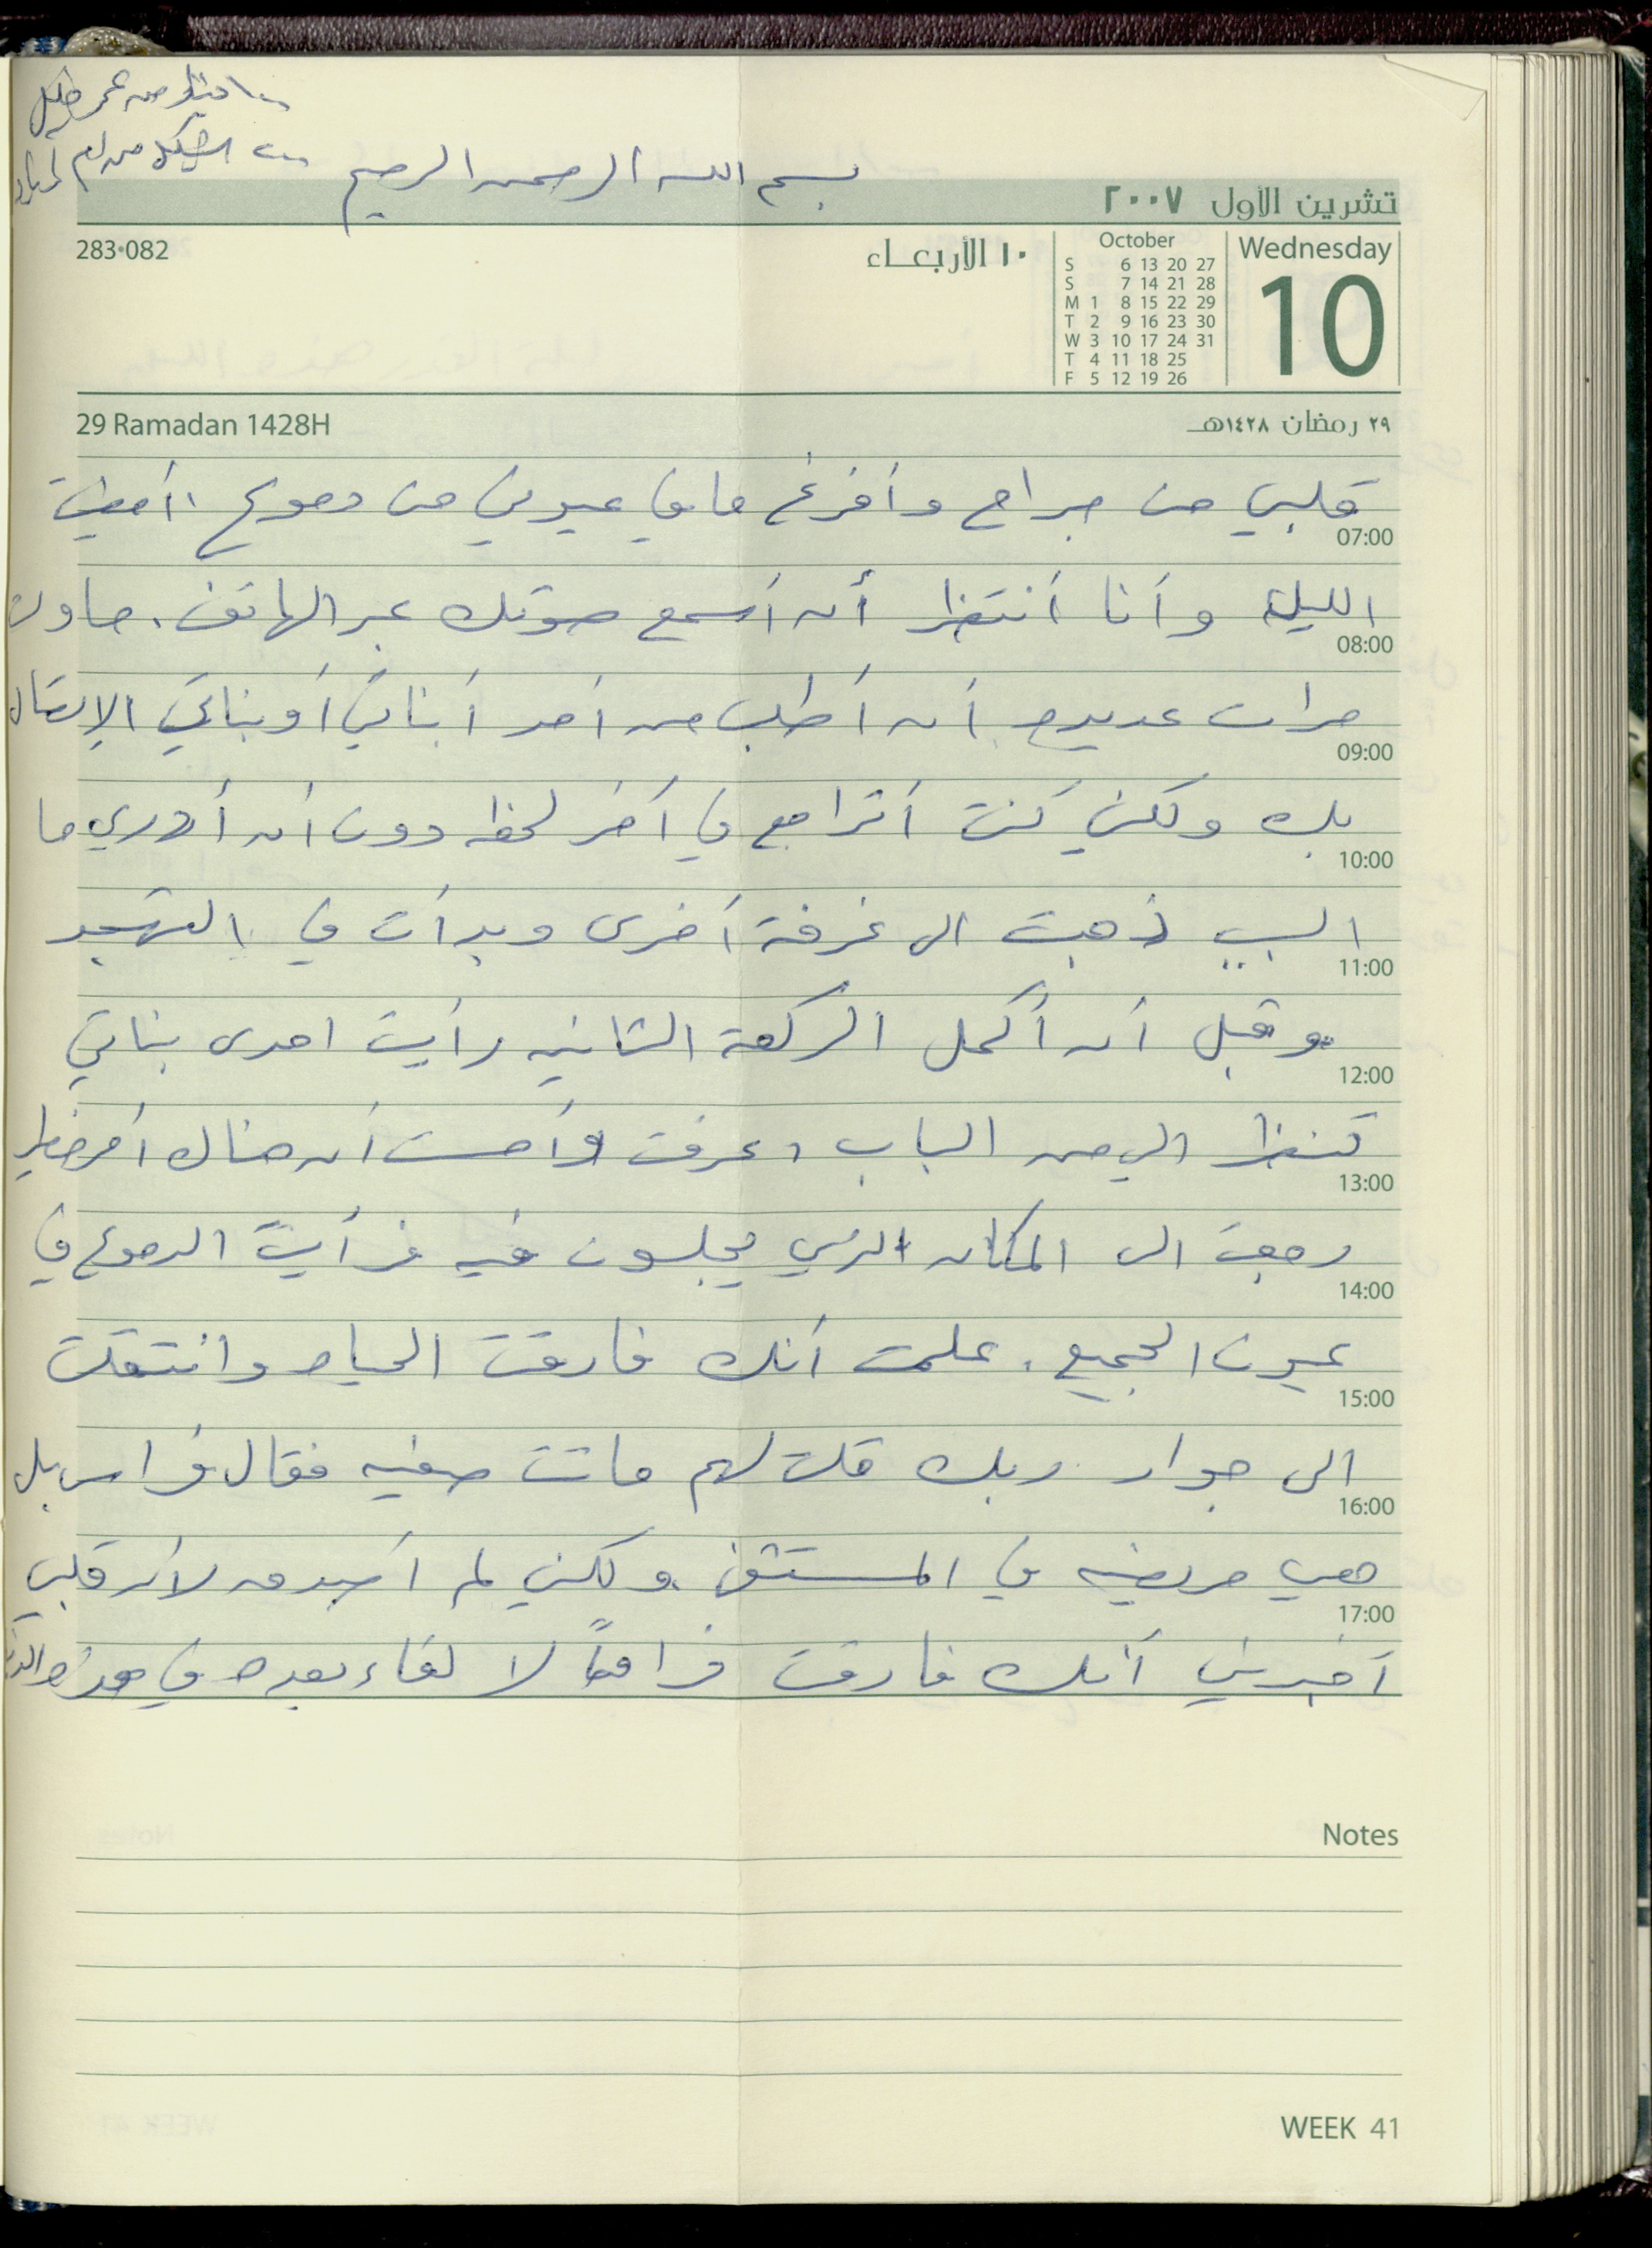 بسم الله الرحمن الرحيم
تشرين الأول ٢٠٠٧
283•082
١٠ الأربعاء
October
S 6 13 20 27
S 7 14 21 28
M 1 8 15 22 29
T 2 9 16 23 30
W 3 10 17 24 31
T 4 11 18 25
F 5 12 19 26
Wednesday
10
29 Ramadan 1428H
٢٩ رمضان ١٤٢٨هـ
قلبي من جراح وأفرغ ما في عيوني من دموع. أمضيت
07:00
الليلة وأنا أنتظر أن أسمع صوتك عبر الهاتف. حاولت
08:00
مرات عديده أن أطلب من أحد أبنائي أو بناتي الإتصال
09:00
بك ولكني كنت أتراجع في آخر لحظه دون أن أدري ما
10:00
السبب ذهبت الى غرفة أخرى وبدأت في التهجد
11:00
وقبل أن أكمل الركعة الثانيه رأيت احدى بناتي
12:00
تنظر الي من الباب عرفت وأحست أن هناك أمر خطير
13:00
رجعت الى المكان الذي يجلسون فيه فرأيت الدموع في
14:00
عيون الجميع. علمت أنك فارقت الحياه وانتقلت
15:00
الى جوار ربك قلت لهم ماتت صفيه فقال فراس بل
16:00
هي مريضه في المستشفى ولكني لم أصدق لأن قلبي
17:00
أخبرني أنك فارقت فراقاً لا لقاء بعده في هذه
Notes
WEEK 41